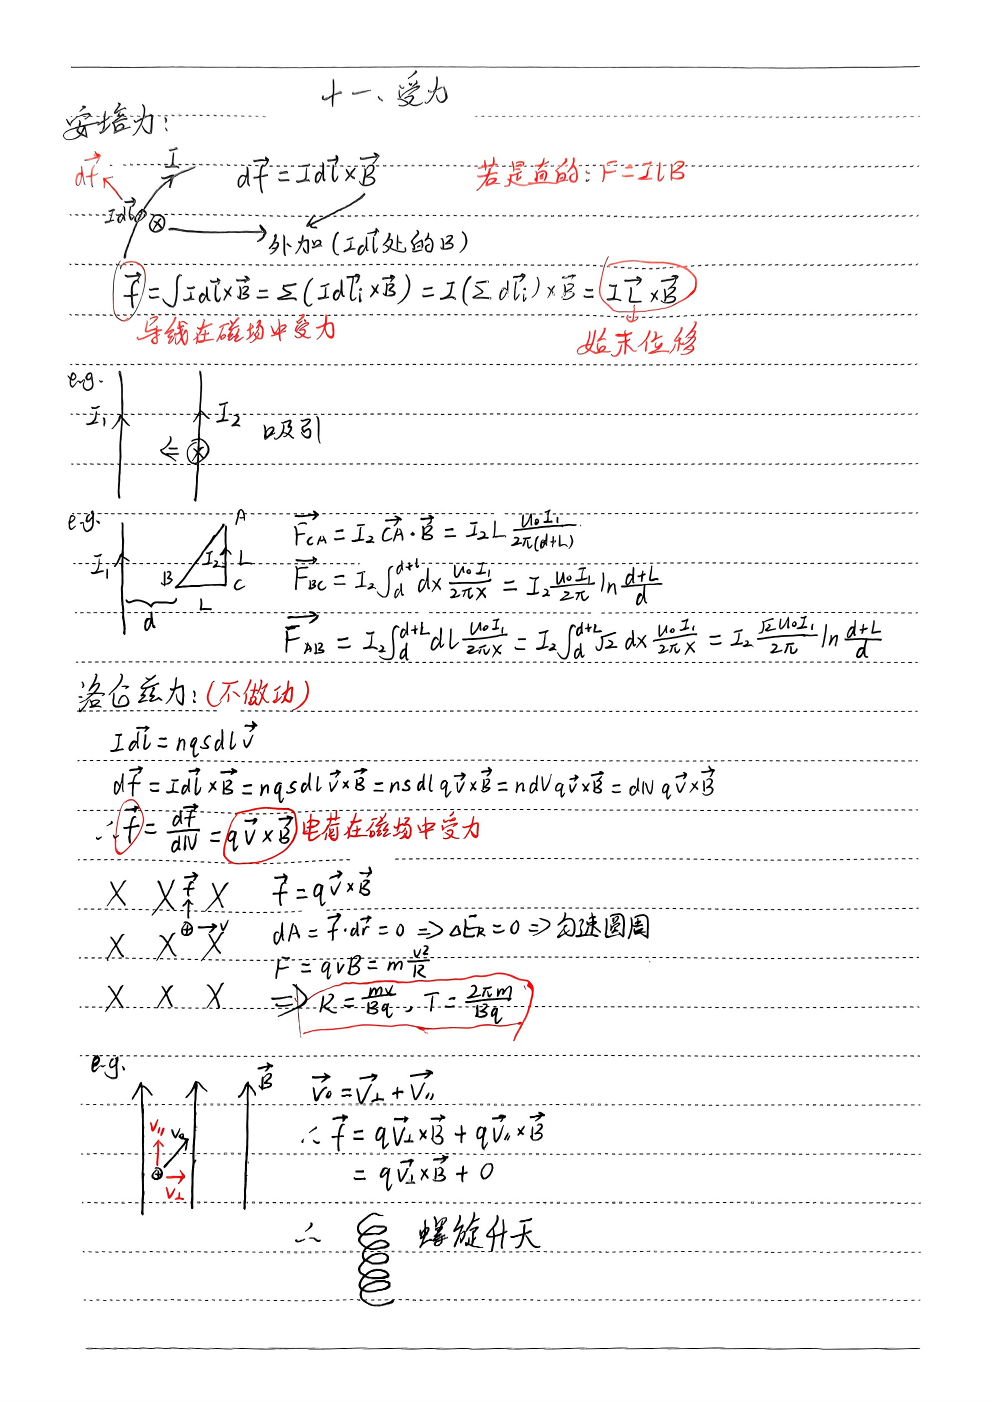 十一、受力
安培力:
df⃗ I df⃗ = Idl⃗×B⃗ 若是直的: F=IlB
Idl⃗ ⊗ 外加 (Idl⃗处的B)
f⃗ = ∫Idl⃗×B⃗ = Σ(Idl⃗ᵢ×B⃗) = I(Σdl⃗ᵢ)×B⃗ = IL⃗×B⃗
导线在磁场中受力 始末位移
e.g.
I₁ I₂ 吸引
e.g. A F⃗_CA = I₂CA⃗·B⃗ = I₂L μ₀I₁/2π(d+L)
I₁ I₂ L B C F⃗_BC = I₂∫_d^{d+L} dx μ₀I₁/2πx = I₂ μ₀I₁/2π ln (d+L)/d
d L F⃗_AB = I₂∫_d^{d+L} dl μ₀I₁/2πx = I₂∫_d^{d+L} √2 dx μ₀I₁/2πx = I₂ √2μ₀I₁/2π ln (d+L)/d
洛仑兹力: (不做功)
Idl⃗ = nqsdlv⃗
df⃗ = Idl⃗×B⃗ = nqsdlv⃗×B⃗ = nsdlqv⃗×B⃗ = ndVqv⃗×B⃗ = dNqv⃗×B⃗
∴ f⃗ = df⃗/dN = qv⃗×B⃗ 电荷在磁场中受力
X X f⃗ X f⃗ = qv⃗×B⃗
X X ⊕→v X dA = f⃗·dr⃗ = 0 ⇒ ΔE_k = 0 ⇒ 匀速圆周
F = qvB = m v²/R
X X X ⇒ R = mv/Bq, T = 2πm/Bq
e.g. B⃗ v⃗₀ = v⃗⊥ + v⃗∥
v∥ v₀ ∴ f⃗ = qv⃗⊥×B⃗ + qv⃗∥×B⃗
⊕ v⊥ = qv⃗⊥×B⃗ + 0
∴ 螺旋升天